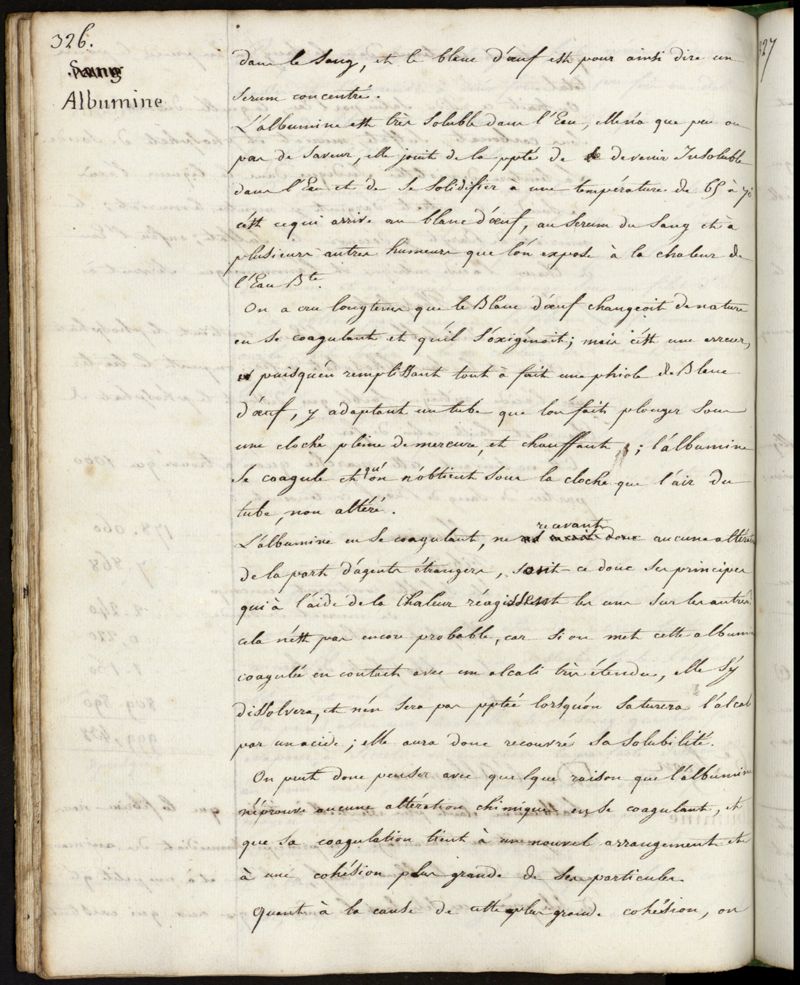 326.
Sang
Albumine
dans le Sang, et le blanc d'œuf est pour ainsi dire un
Serum concentré.
L'albumine est très Soluble dans l'Eau, elle n'a que peu ou
pas de Saveur, elle jouit de la ppté de devenir Insoluble
dans l'Eau et de se Solidifier a une température de 65 à 7
c'est ce qui arrive au blanc d'œuf, au Serum du Sang et à
plusieurs autres humeurs que l'on expose à la chaleur de
l'Eau Bte.
On a cru longtems que le Blanc d'œuf changeoit de nature
en se coagulant et qu'il s'oxigénoit; mais c'est une erreur,
puisqu'en remplissant tout à fait une phiole de Blanc
d'œuf, y adaptant un tube que l'on fait plonger Sous
une cloche pleine de mercure, et chauffant; l'albumine
se coagule et qu'on n'obtient sous la cloche que l'air du
tube, non altéré.
L'albumine en se coagulant, ne recevant donc aucune altéra
de la part d'agents étrangers, Sont-ce donc Ses principes
qui à l'aide de la Chaleur réagissent les uns sur les autres
cela n'est pas encore probable, car si on met cette album
coagulée en contact avec un alcali très étendu, elle s'y
dissolvera, et n'en sera pas pptée lorsqu'on saturera l'alcal
par un acide; elle aura donc recouvré sa solubilité.
On peut donc penser avec quelque raison que l'albumine
n'éprouve aucune altération chimique en se coagulant, et
que sa coagulation tient à un nouvel arrangement et
à une cohésion plus grande de ses particules
Quant à la cause de cette plus grande cohésion, on
327